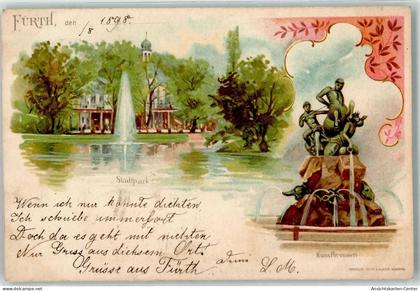 FÜRTH, den 1/8 1898.
Stadtpark
Kunstbrunnen
Wenn ich nur könnte dichten
Ich schriebe immerfort
Doch da es geht mit nichten
Nur Gruss aus diesem Ort.
Grüsse aus Fürth
L. M.
www.ansichtskarten-center.de